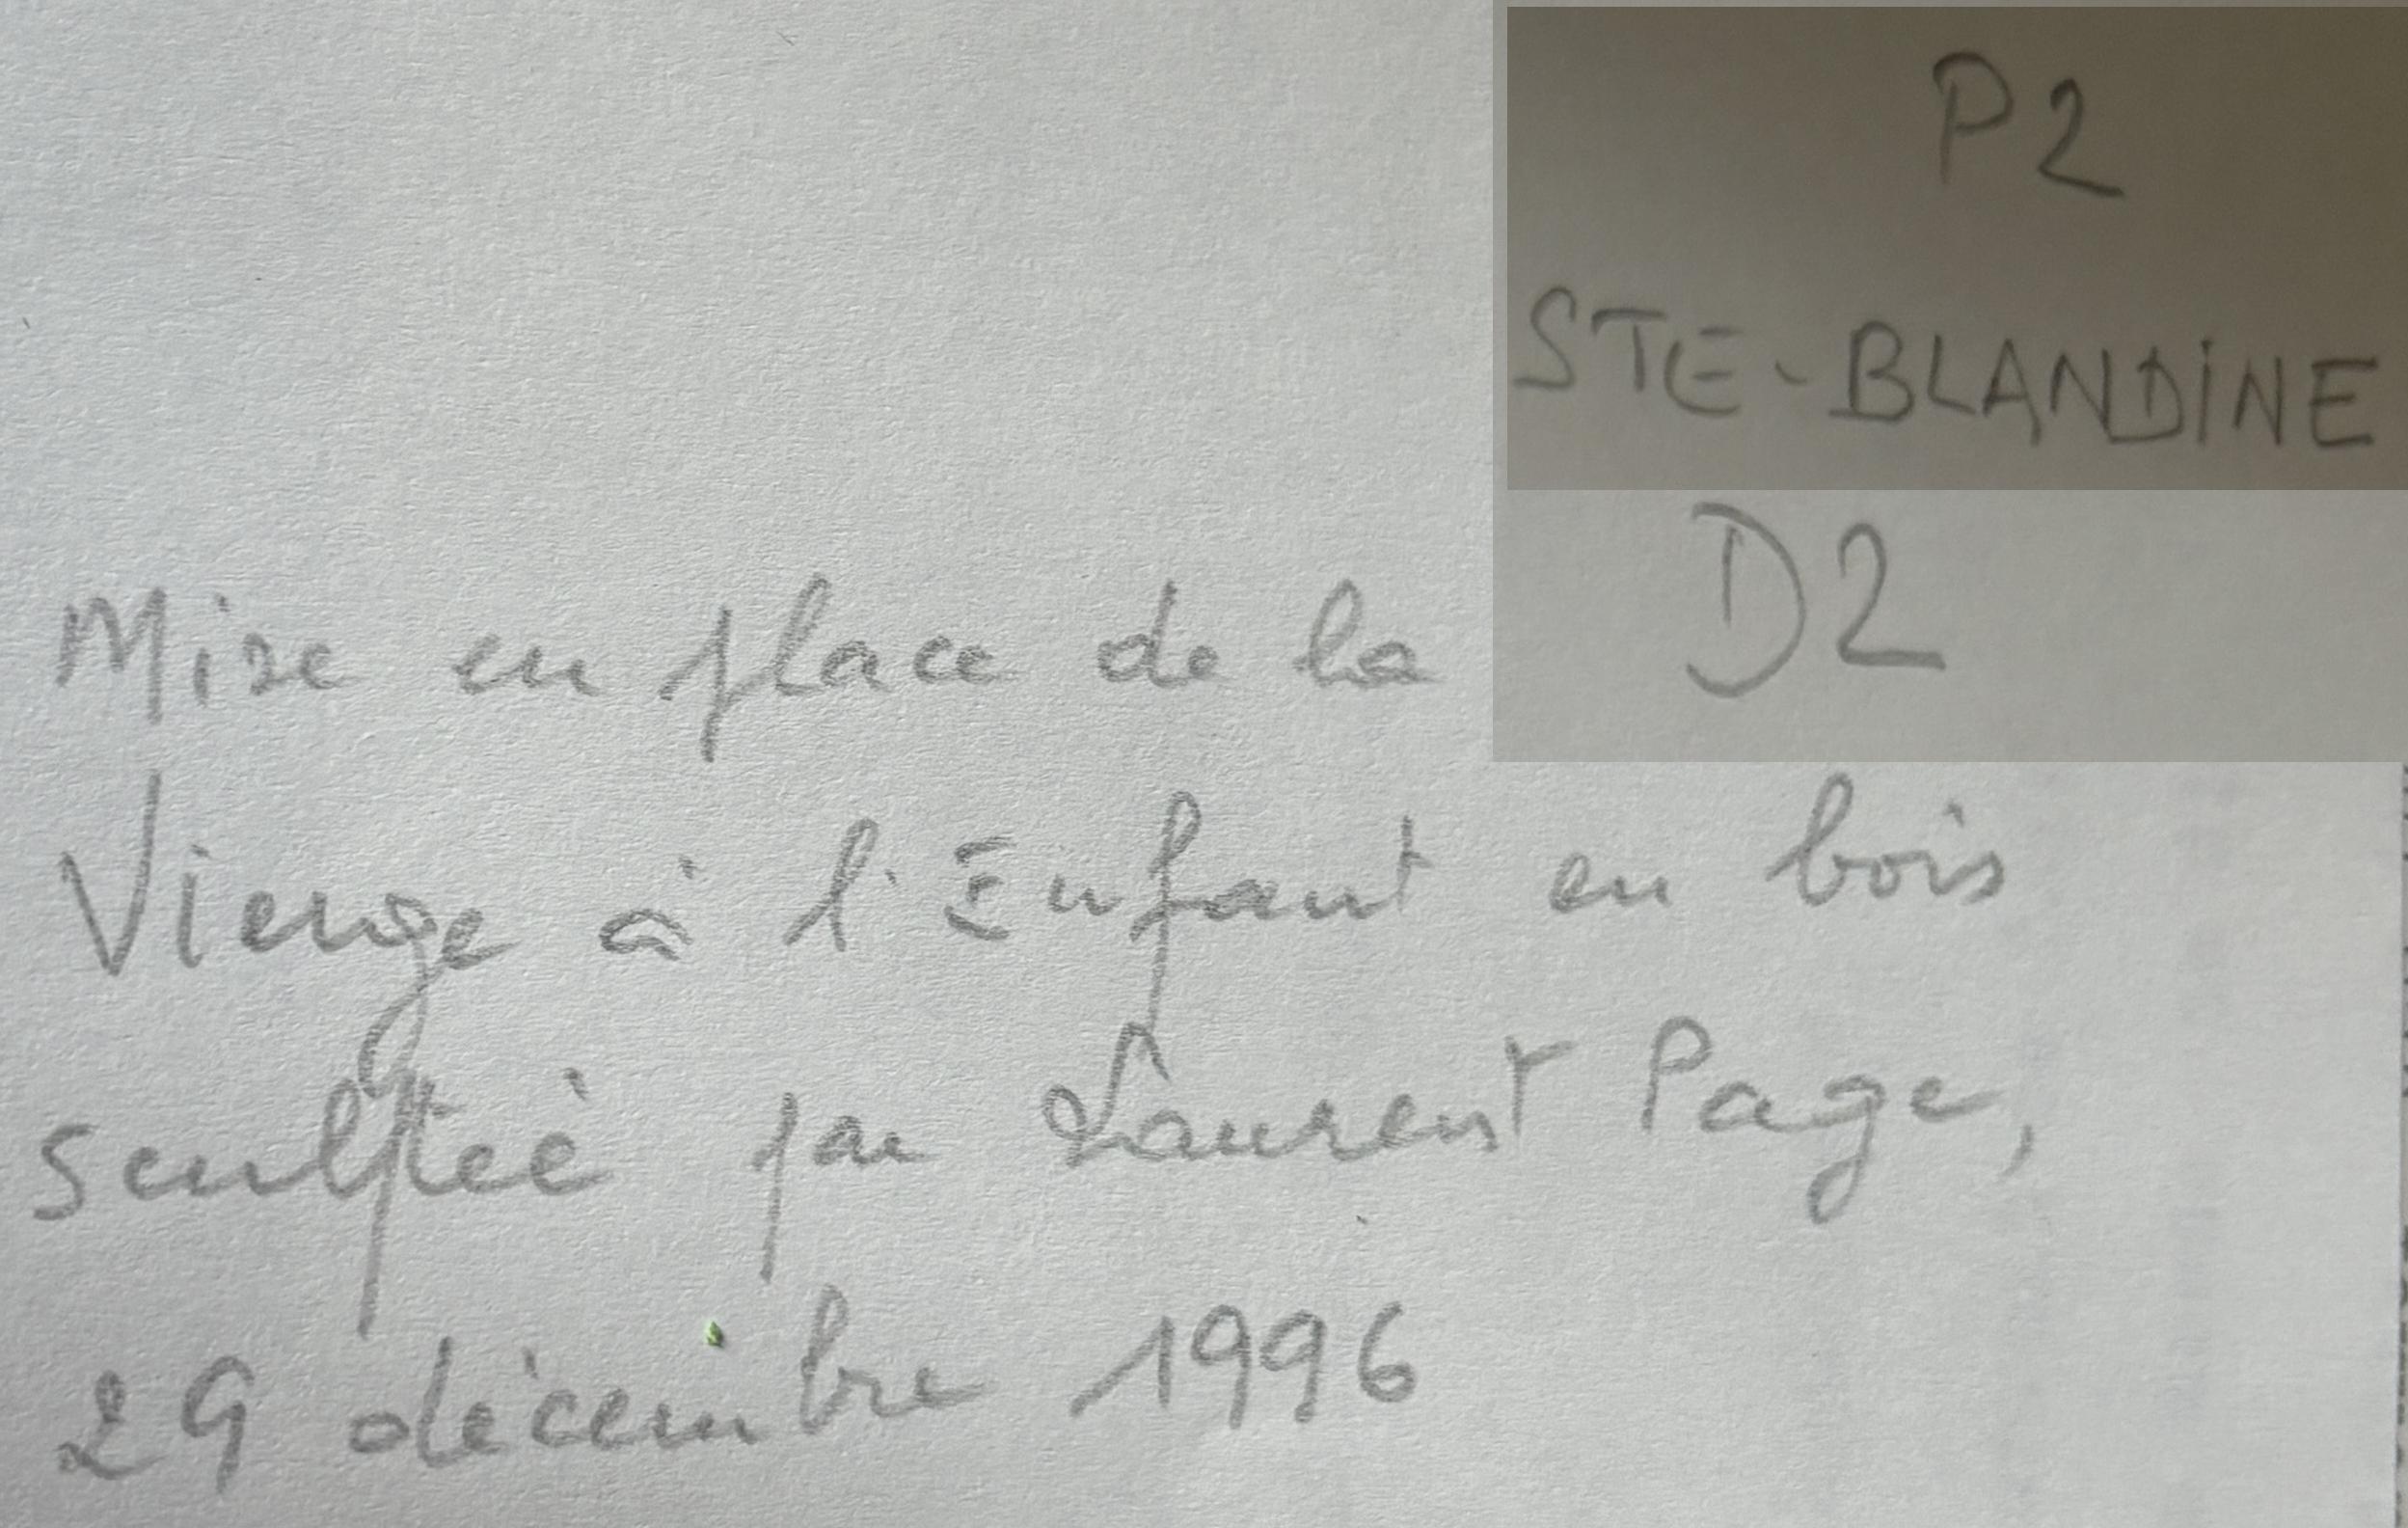 P2
STE-BLANDINE
D2
Mise en place de la
Vierge à l'Enfant en bois
sculptée par Laurent Page,
29 décembre 1996